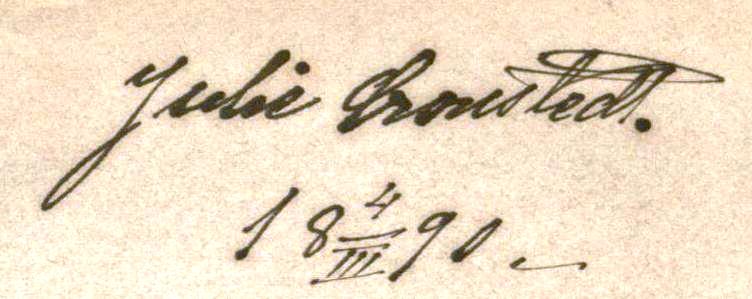 Julie Cronstedt.
18 4/III 90_